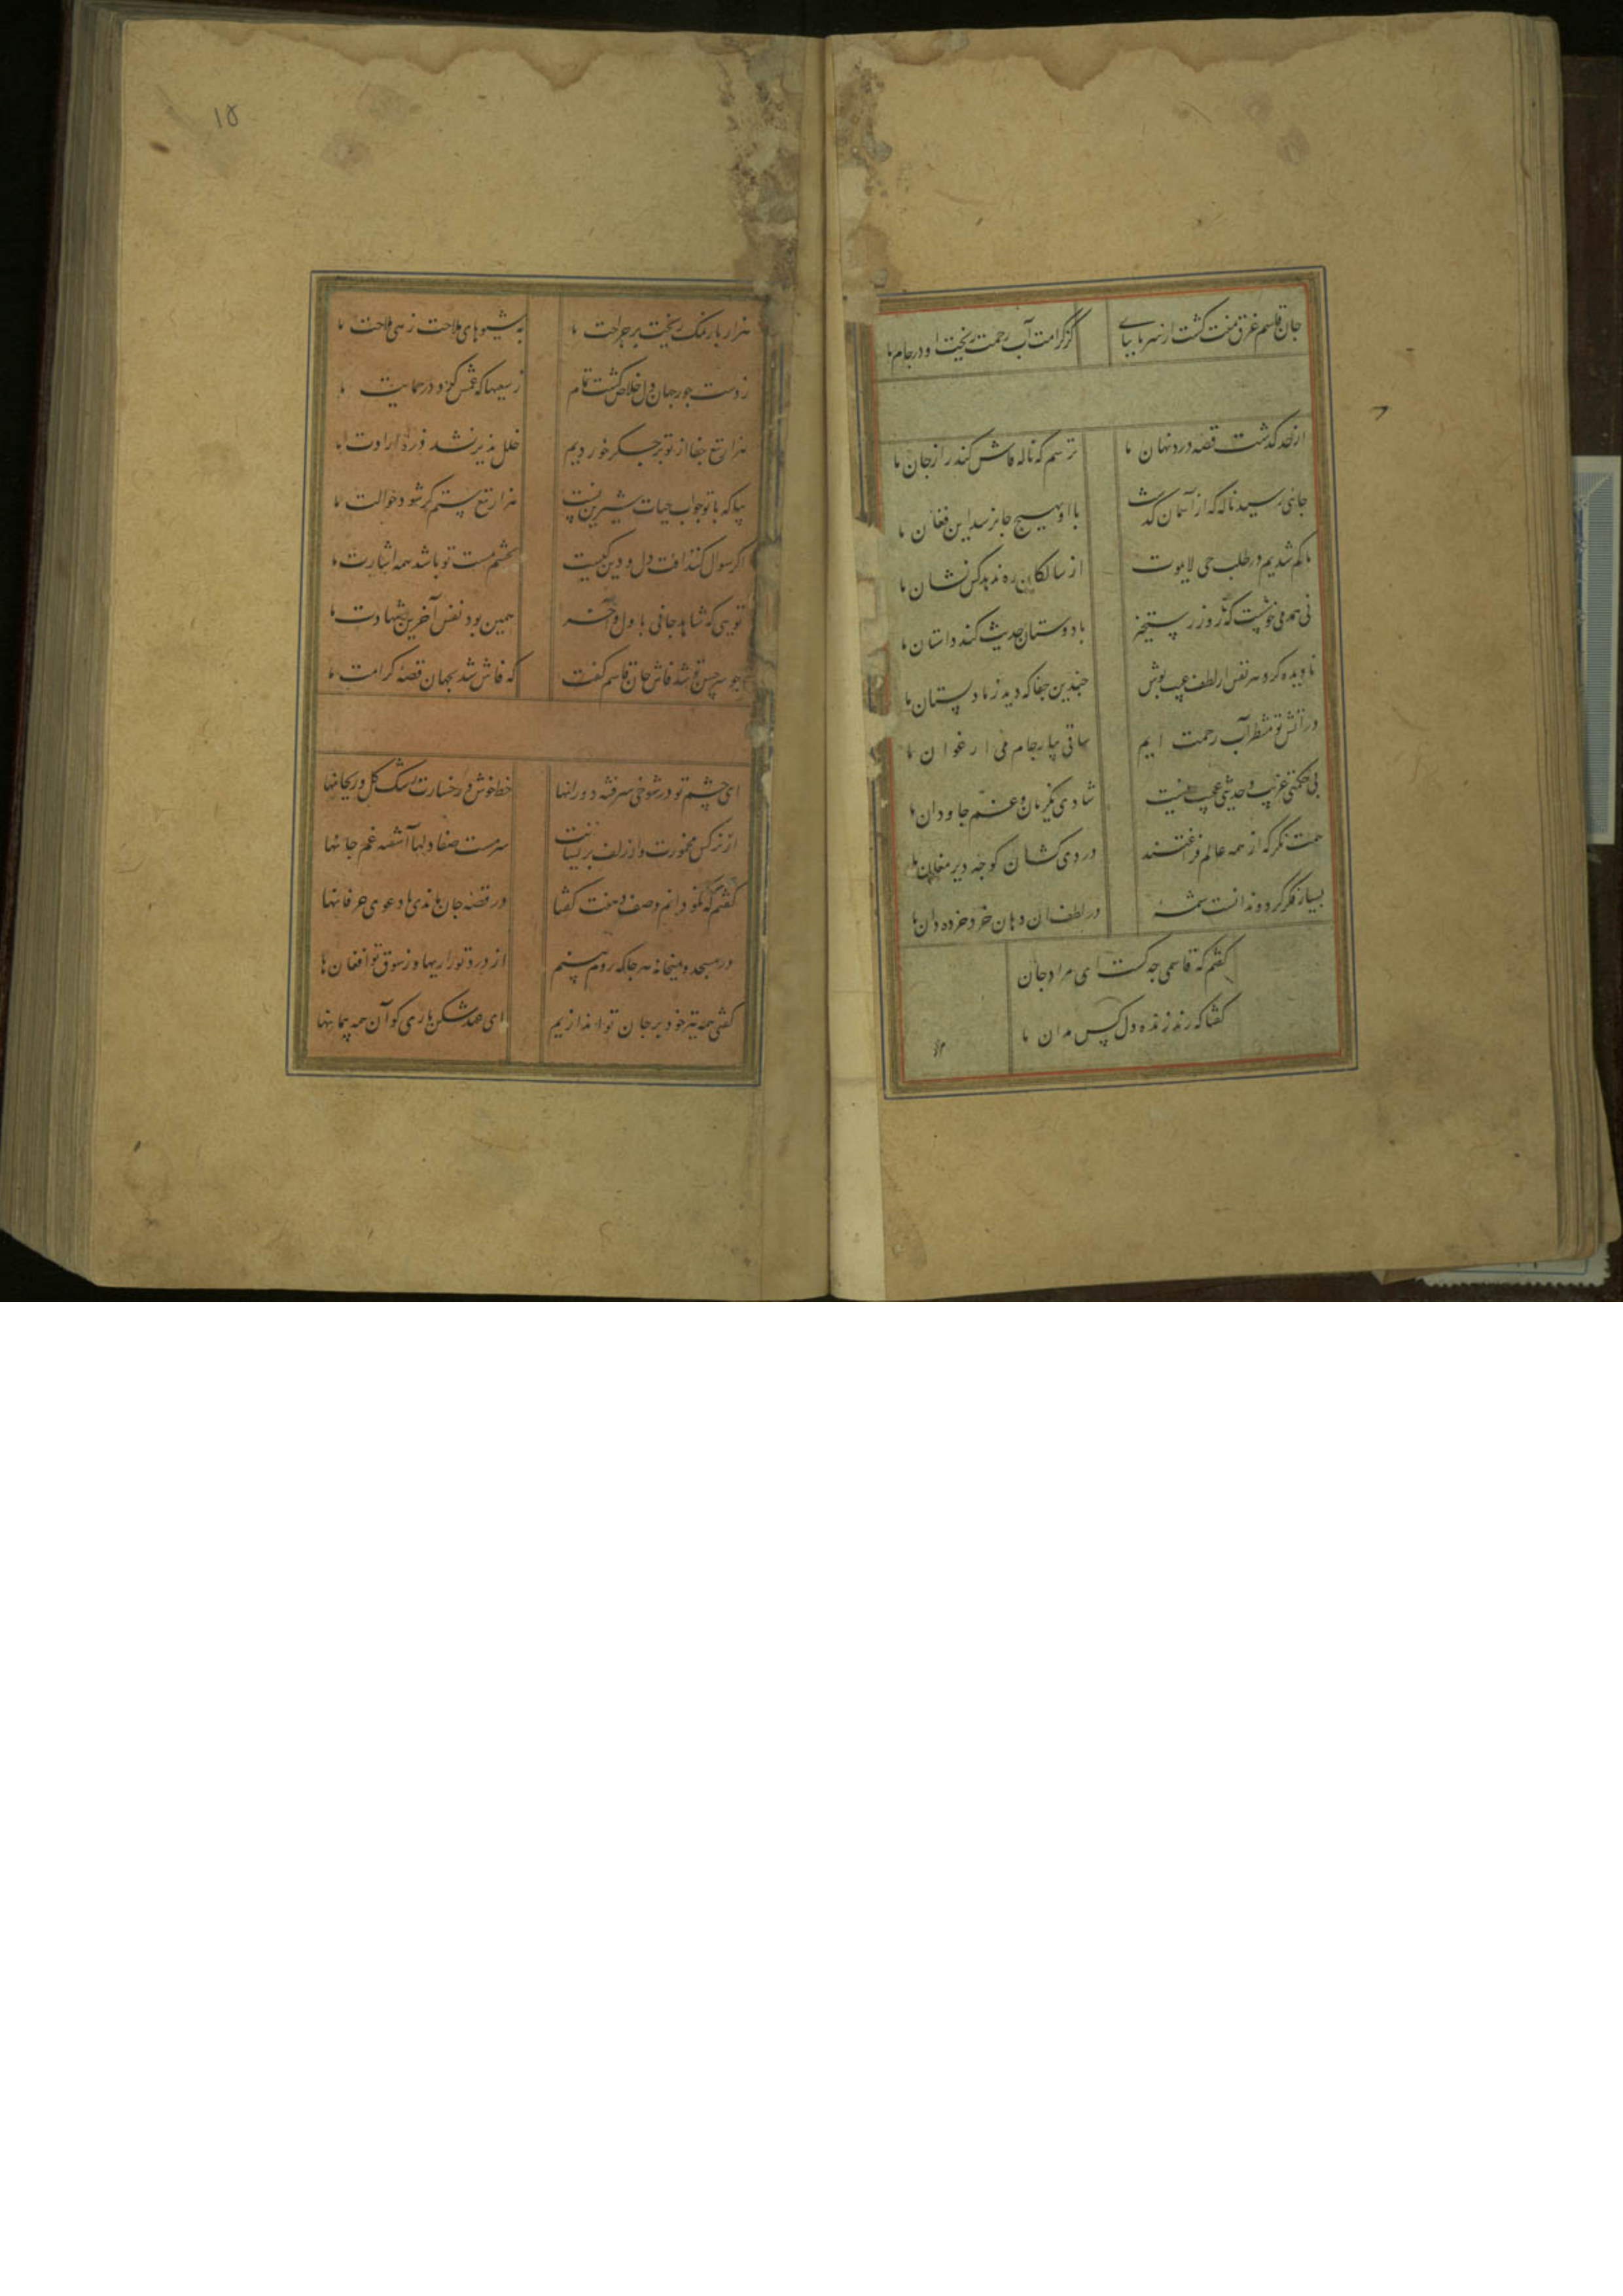 جان قاسم غرق منت گشت از سر تا بپای
کز کرامت آب رحمت ریخت او در جام ما
از حد گذشت قصه درد نهان ما
ترسم که ناله فاش کند راز جان ما
جایی رسید ناله که از آسمان گذشت
با او بهیچ جا نرسد این فغان ما
ما گم شدیم در طلب حی لایموت
از سالکان ره ندهد کس نشان ما
نی همدمی خوشست که تا روز رستخیز
با دوستان حدیث کند داستان ما
نادیده کرد هر نفس از لطف عیب پوش
چندین جفا که دید زما دلستان ما
در آتش تو منتظر آب رحمت ایم
ساقی بیار جام می ارغوان ما
بی حکمتی غریب و حدیثی عجیب نیست
شادی یکزمان و غم جاودان ما
همت نگر که از همه عالم فراغتند
دردی کشان کوچه دیر مغان ما
بسیار فکر کرد و ندانست شمهٔ
در لطف آن دهان خرد خرده دان ما
گفتم که قاسمی چه کست ای مراد جان
گفتا که رند زنده دل کس مدان ما
۱۵
هزار بار نمک ریخت بر جراحت ما
به شیوهای ملاحت زهی ملاحت ما
ز دست جور جهان دل خلاص گشت تمام
ز سعیها که غمش کرد در حمایت ما
هزار تیغ جفا از تو بر جگر خوردیم
خلل پذیر نشد ذرهٔ ارادت ما
بیا که با تو جواب حیات شیرین نیست
هزار تیغ ستم گر شود حوالت ما
اگر سوال کنند آفت دل و دین کیست
بچشم مست تو باشد همه اشارت ما
تویی که شاهد جانی باول و آخر
همین بود نفس آخرین شهادت ما
چو سر حسن تو شد فاش جان قاسم گفت
که فاش شد بجهان قصهٔ کرامت ما
ای چشم تو در شوخی سرفتنه دورانها
خط خوش و رخسارت رشک گل و ریحانها
از نرگس مخمورت واز زلف پریشانت
سرمست صفا دلها آشفته غم جانها
در قصه جان ماندی با دعوی عرفانها
در مسجد و میخانه هرجا که روم بینم
از درد تو زاریها وز شوق تو افغان ها
گفتی همه تیر خود بر جان تو اندازیم
ای عهد شکن باری کو آن همه پیمانها